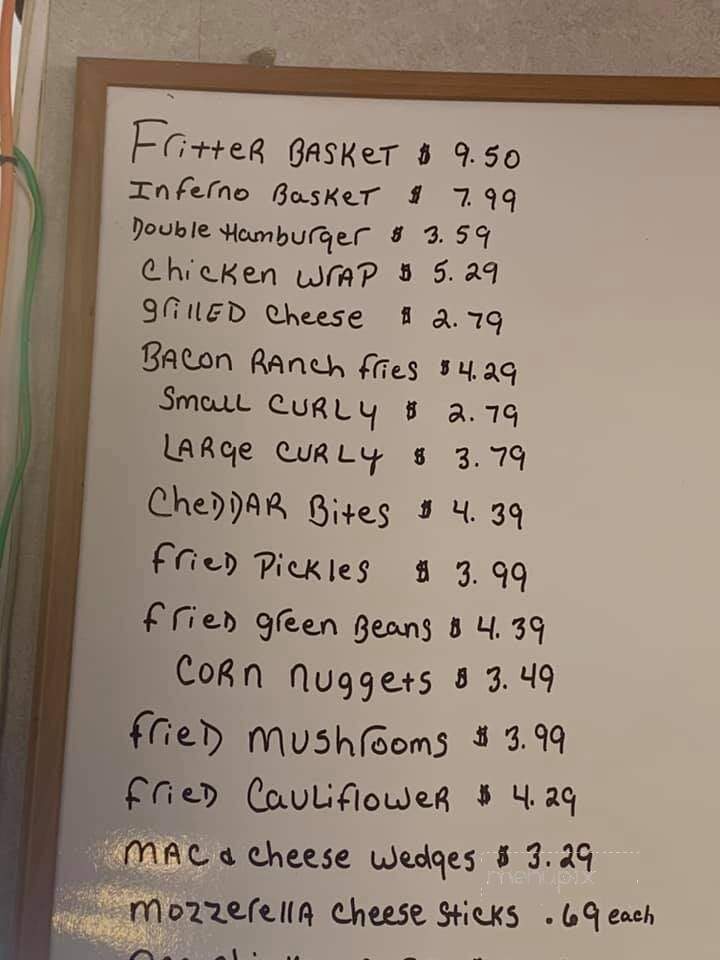 Fritter BASKET $ 9.50
Inferno BasKET $ 7.99
Double Hamburger $ 3.59
Chicken WRAP $ 5.29
grillED Cheese $ 2.79
BACON RANCH fries $4.29
Small CURLY $ 2.79
LARge CURLY $ 3.79
CheDDAR Bites $ 4.39
frieD Pickles $ 3.99
frieD green Beans $ 4.39
CORN nuggets $ 3.49
frieD mushrooms $ 3.99
frieD CauLiflowER $ 4.29
MAC & cheese wedges $ 3.29
menupix
mozzerellA cheese sticks .69 each